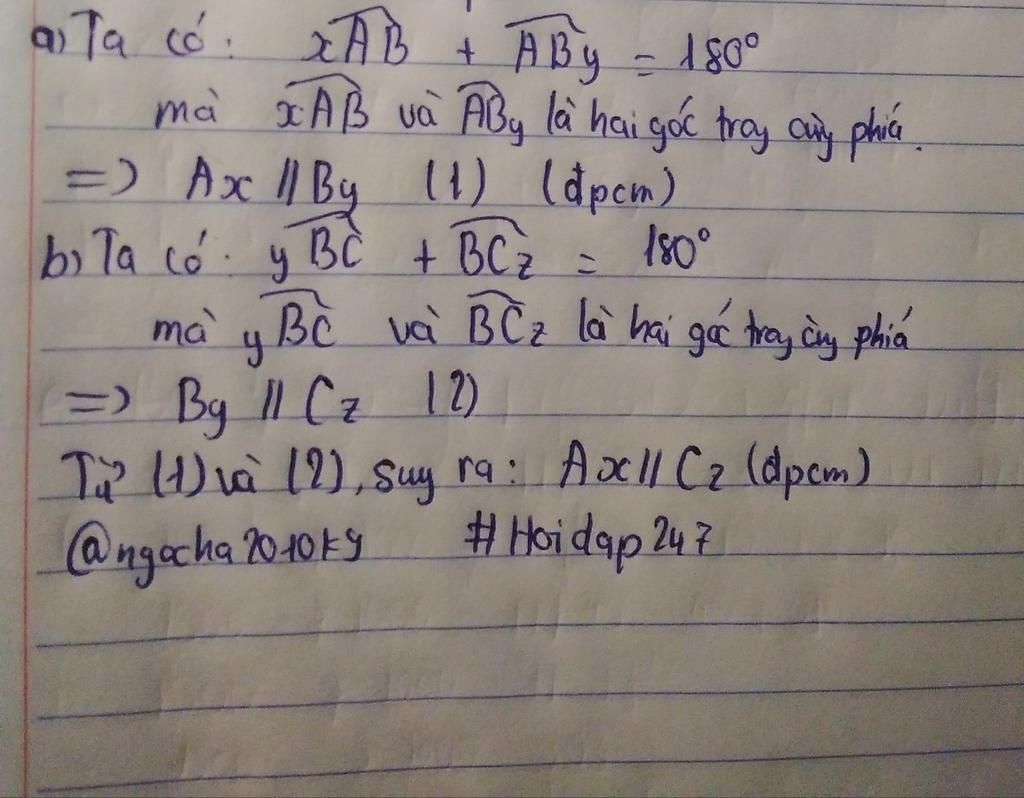 a) Ta có: xAB + ABy = 180°
mà xAB và ABy là hai góc trog cùg phiá.
=> Ax // By (1) (đpcm)
b) Ta có: yBC + BCz = 180°
mà yBC và BCz là hai góc trog cùg phiá
=> By // Cz (2)
Từ (1) và (2), suy ra: Ax // Cz (đpcm)
@ngocha2010kg #Hoidap247